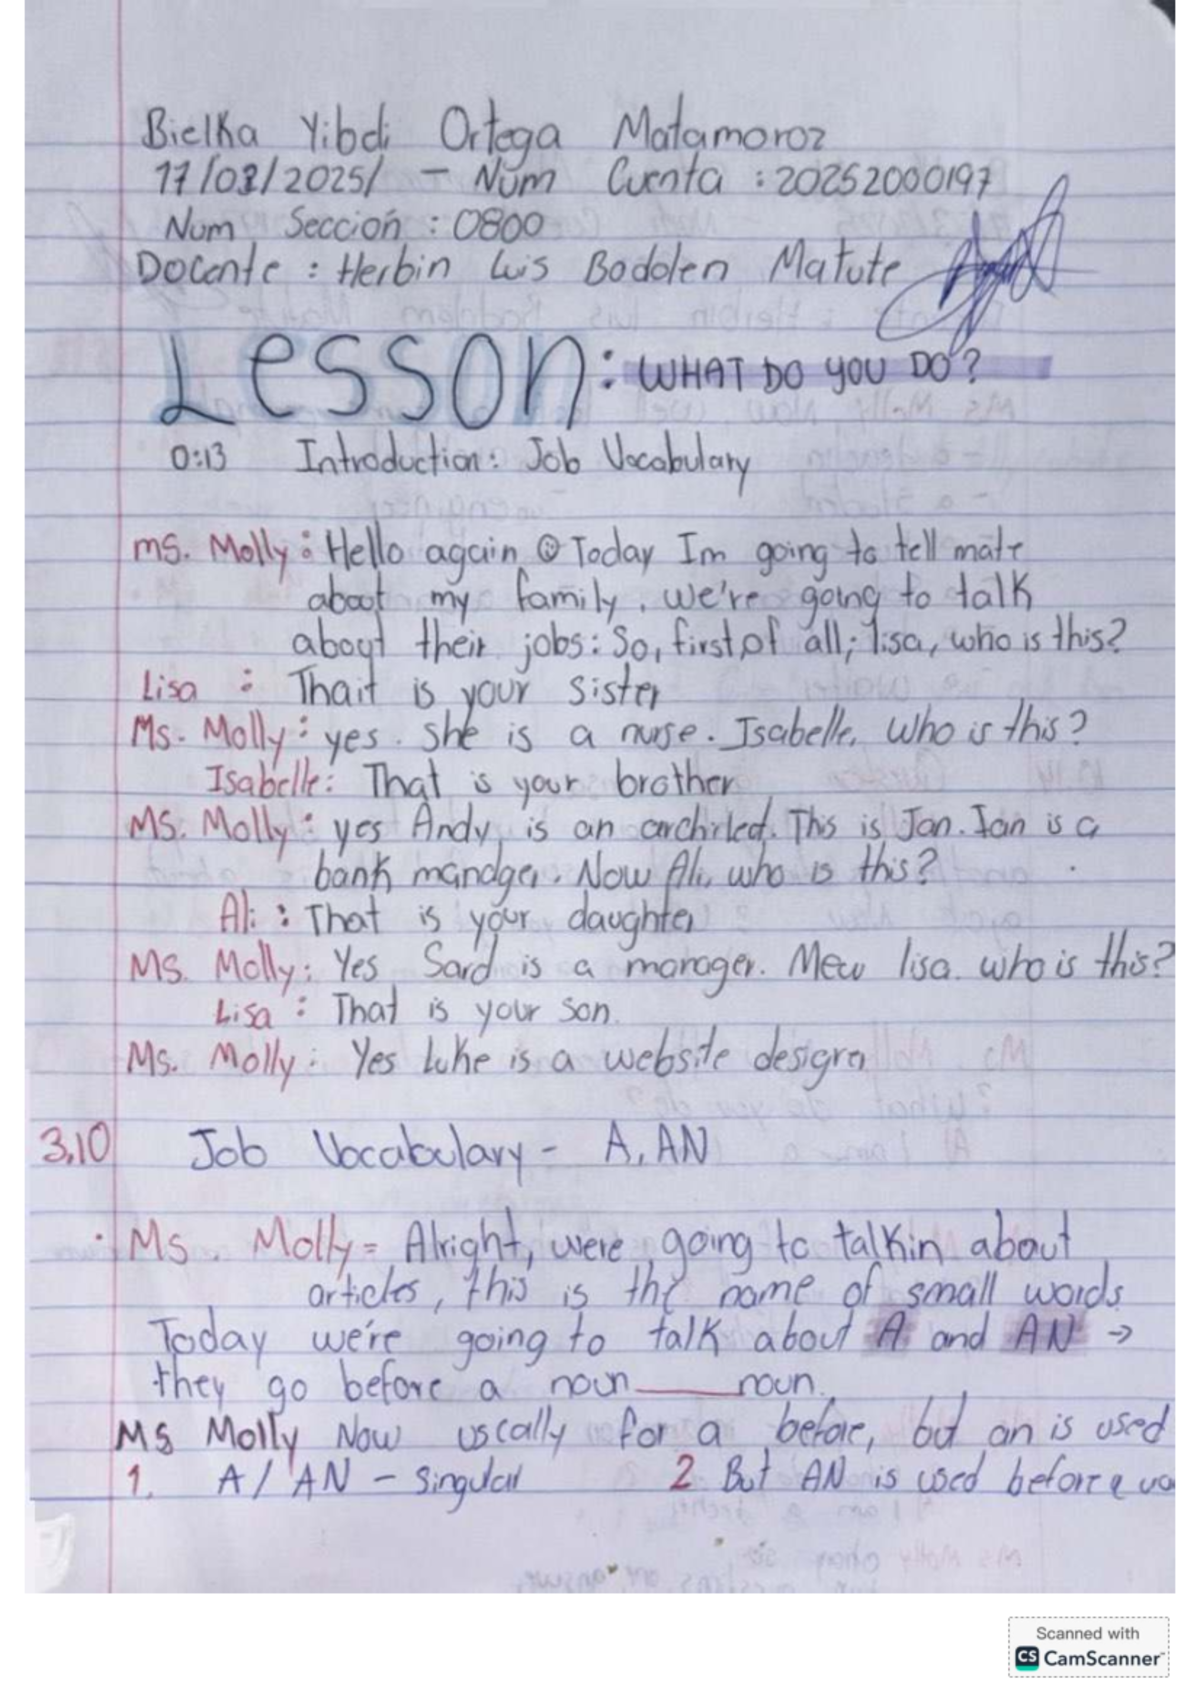 Bielka Yibdi Ortega Matamoroz
17/03/2025/ - Num Cuenta : 20252000197
Num Sección : 0800
Docente : Herbin Luis Bodden Matute
Lesson: WHAT DO YOU DO?
0:13 Introduction: Job Vocabulary
ms. Molly: Hello again ☺ Today Im going to tell
about my family. we're going to talk
about their jobs: So, first of all; lisa, who is this?
Lisa : is your sister
Ms. Molly: yes. She is a nurse. Isabelle, Who is this?
Isabelle: That is your brother
MS. Molly: yes Andy, is an This is Ian. Ian is a
bank Now Ali, who is this?
Ali : That is your daughter
MS. Molly: Yes is a manager. lisa. who is this?
Lisa : That is your son.
Ms. Molly: Yes Luke is a website
3.10 Job Vocabulary - A, AN
· Ms. Molly = Alright, were going to talkin about
articles, this is the name of small words.
Today we're going to talk about A and AN →
they go before a noun ___ noun.
Ms Molly Now uscally for a before, but an is used
1. A / AN - Singular 2 But AN is used before
Scanned with
CS CamScanner